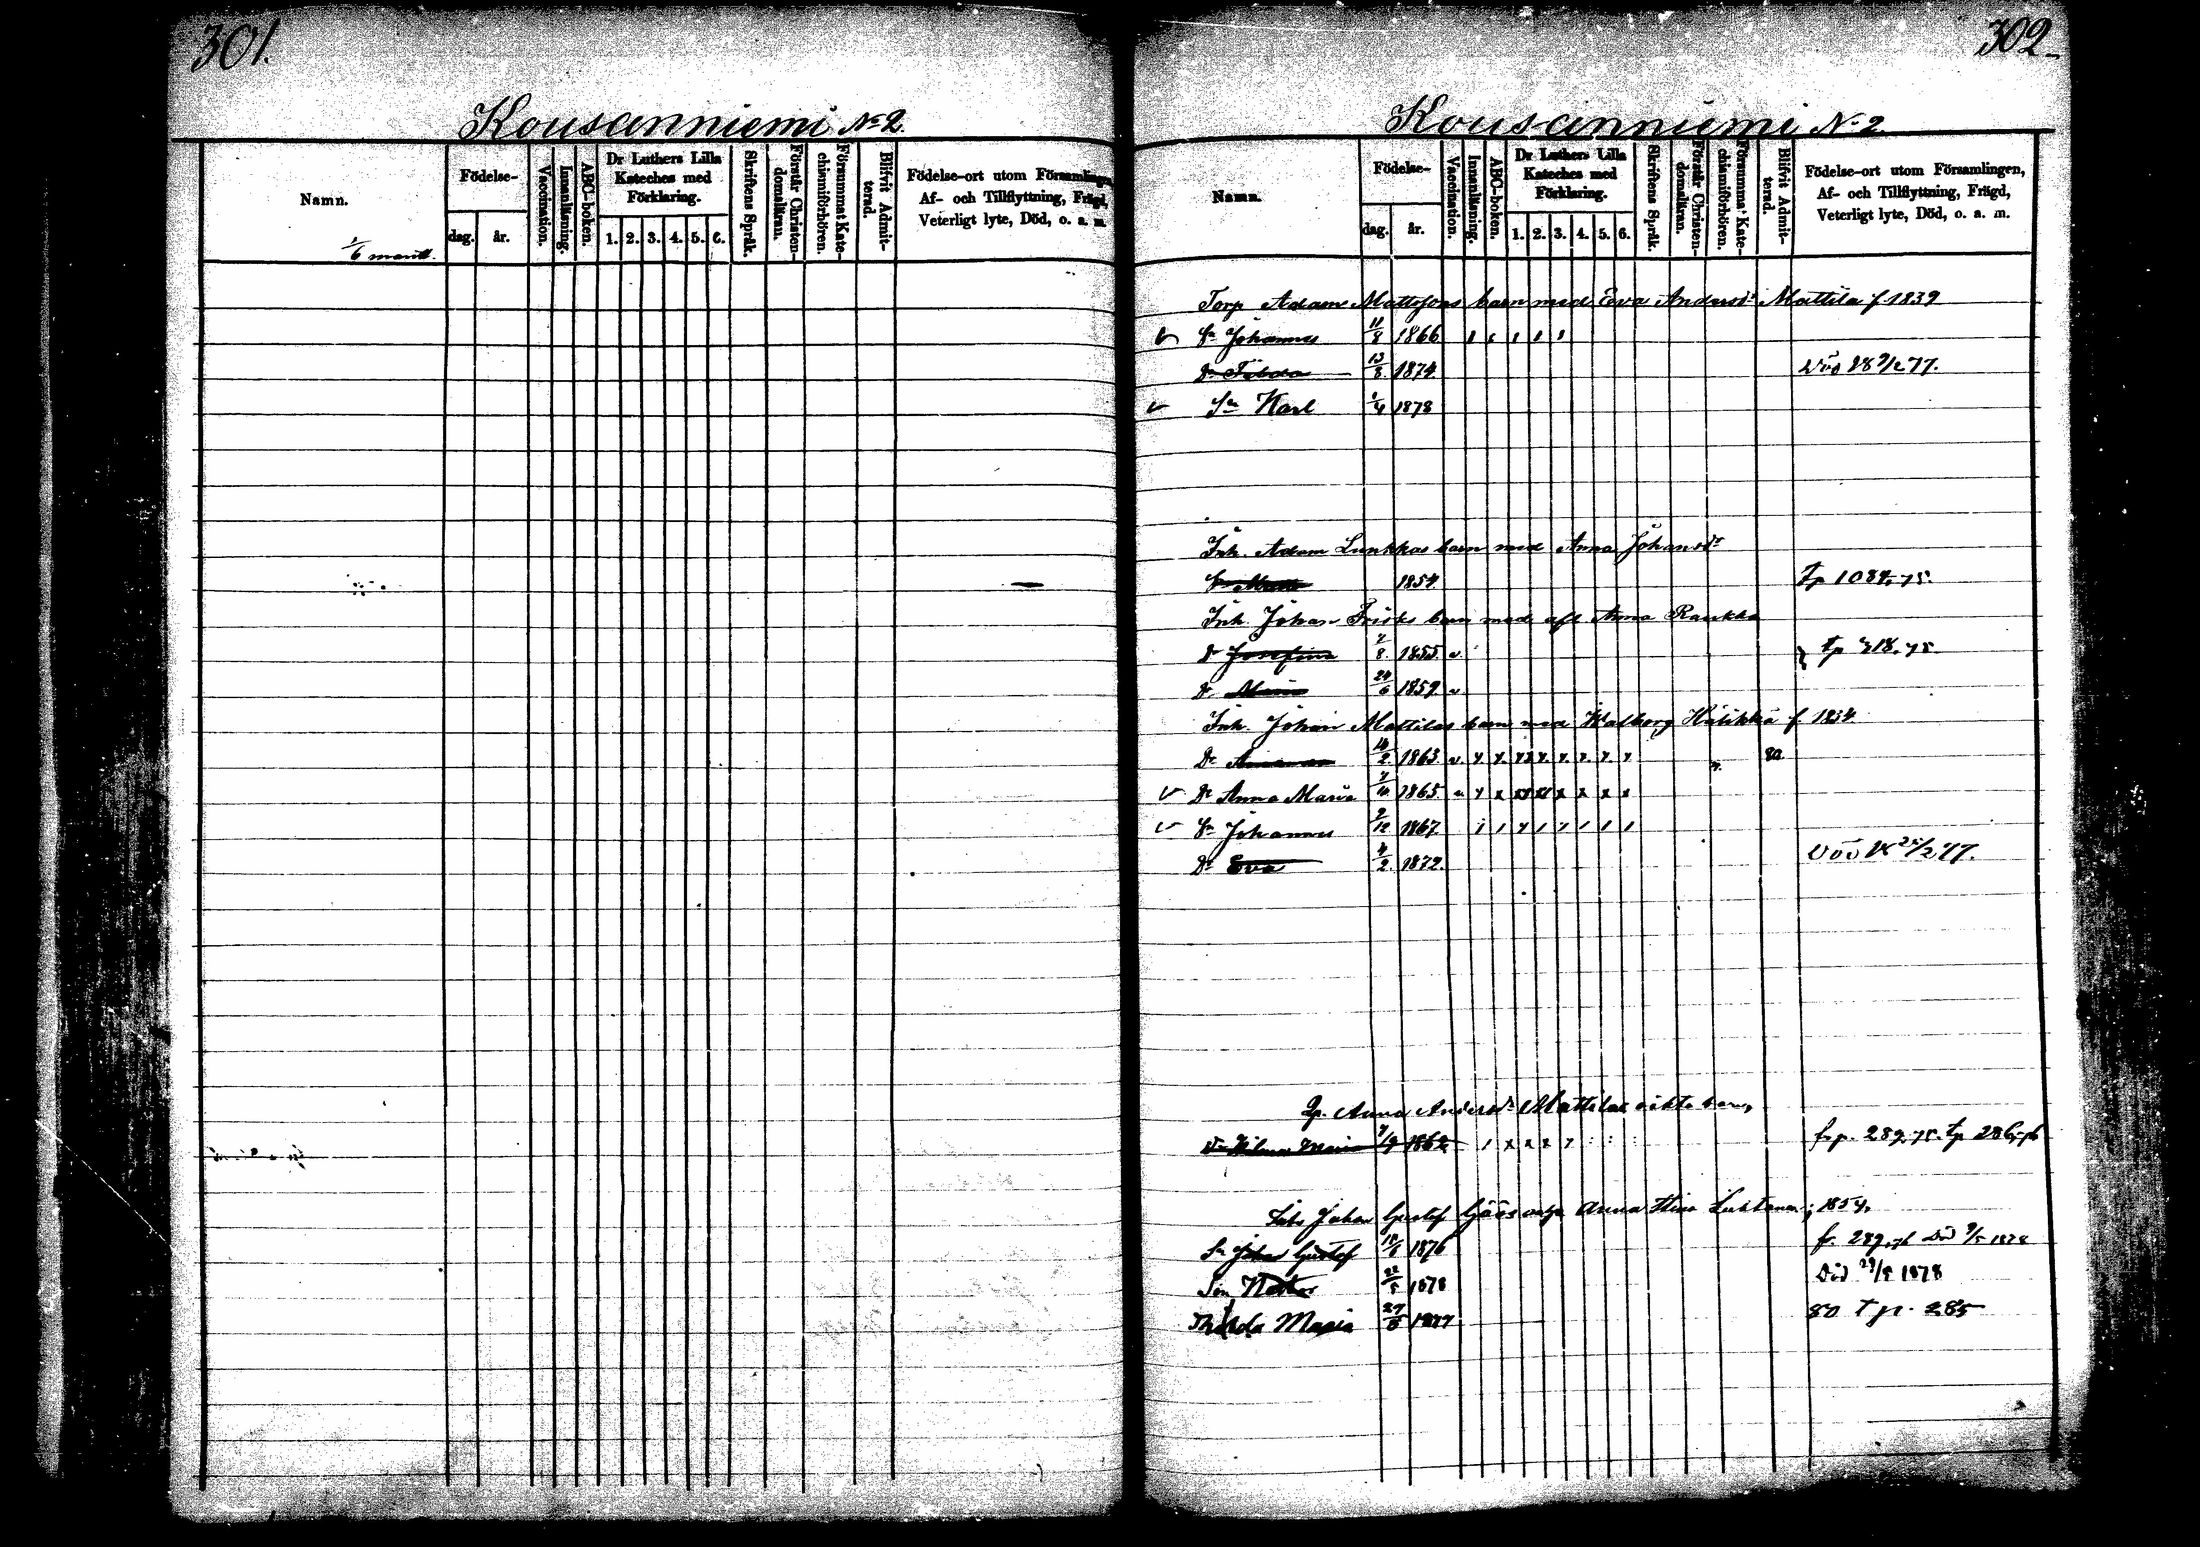 301.
Kousanniemi No 2.
Namn.
1/6 mantl.
Födelse-
dag.
år.
Vaccination.
Innanläsning.
ABC-boken.
Dr Luthers Lilla
Kateches med
Förklaring.
1. 2. 3. 4. 5. 6.
Skriftens Språk.
Förstår Christen-
domsläran.
Försummat Kate-
chismiförhören.
Blifvit Admit-
terad.
Födelse-ort utom Församlingen,
Af- och Tillflyttning, Frägd,
Veterligt lyte, Död, o. a. m.
302
Kousanniemi No 2.
Namn.
Födelse-
dag.
år.
Vaccination.
Innanläsning.
ABC-boken.
Dr Luthers Lilla
Kateches med
Förklaring.
1. 2. 3. 4. 5. 6.
Skriftens Språk.
Förstår Christen-
domsläran.
Försummat Kate-
chismiförhören.
Blifvit Admit-
terad.
Födelse-ort utom Församlingen,
Af- och Tillflyttning, Frägd,
Veterligt lyte, Död, o. a. m.
Torp Adam Mattssons barn med Eva Andersdr Mattila f 1839
v Sn Johannes 11/8 1866
Dr 13/8 1874. Död 77.
v Sn Karl 1/4 1878
Inh. Adam Lunkkas barn med Anna Johansdr
1854 tp 75.
Inh. Johan Frisks barn med afl Anna Raukka
Dr Josefina 2/8. 1855 v tp 318. 75.
Dr Maria 24/6 1859 v
Inh. Johan Mattilas barn med Walborg f 1834.
Dr 2. 1863 v 80.
v Dr Anna Maria 1865
v Sn Johannes 9/12 1867
Dr Eva 4/2. 1872. Död 77.
Anna Andersdr Mattilas barn,
Maria 1862 fr p. 289, 75. tp 286, 76
Johan Gustaf Anna Stina 1854,
Sn Johan Gustaf 1876 fr 289, 76 Död 9/5 1878
Son 22/5 1878 Död 29/8 1878
Maria 1877 80 t p. 285